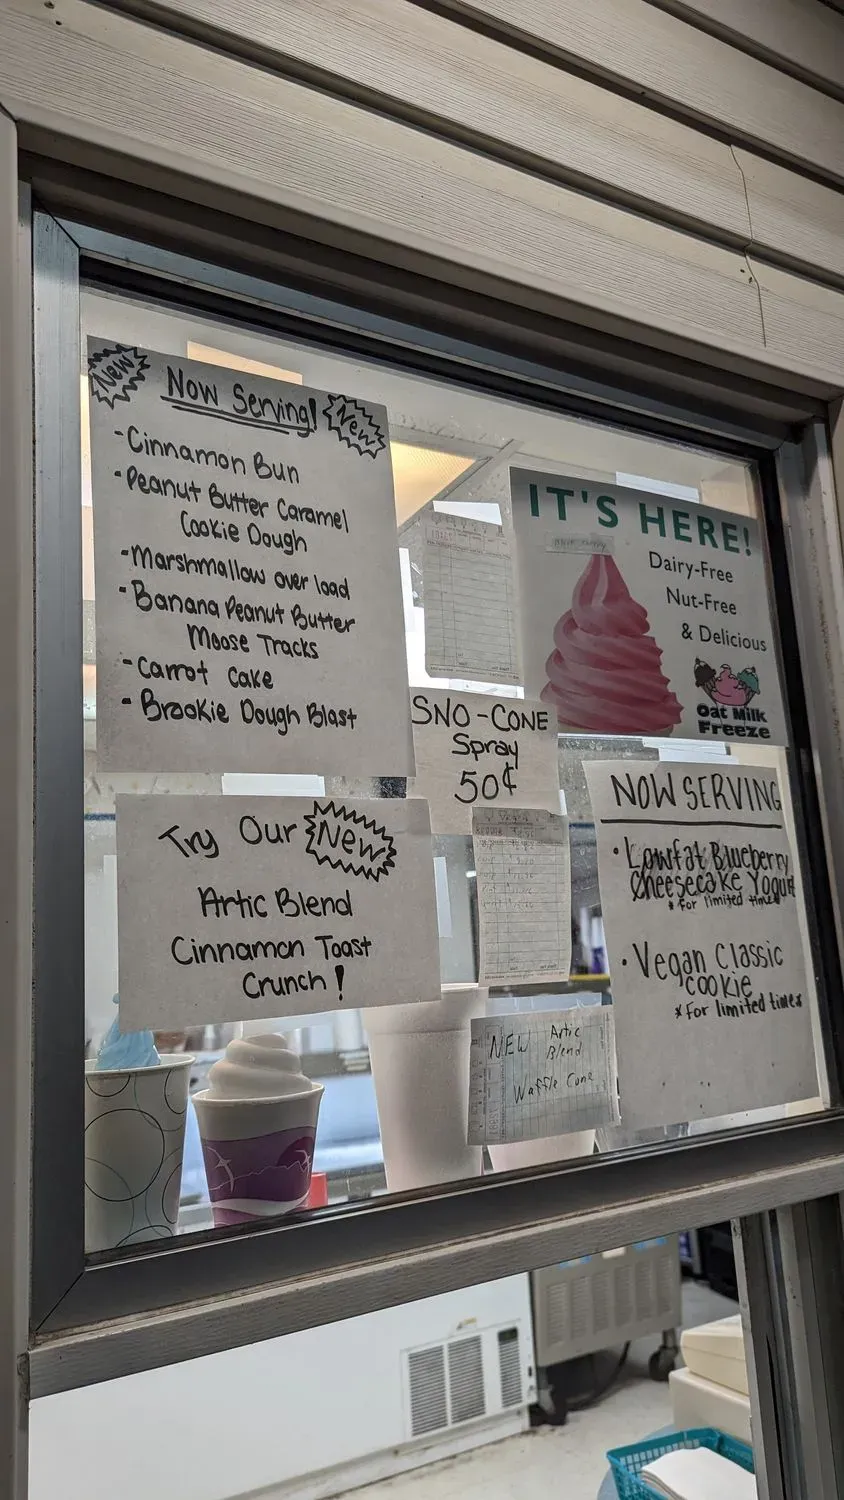 New
Now Serving!
New
-Cinnamon Bun
-Peanut Butter Caramel
Cookie Dough
-Marshmallow over load
-Banana Peanut Butter
Moose Tracks
-Carrot Cake
-Brookie Dough Blast
Try Our New
Artic Blend
Cinnamon Toast
Crunch!
SNO-CONE
Spray
50¢
NEW Artic
Blend
Waffle Cone
IT'S HERE!
Dairy-Free
Nut-Free
& Delicious
Oat Milk
Freeze
NOW SERVING
• Lowfat Blueberry
Cheesecake Yogurt
*For limited time*
• Vegan Classic
cookie
*For limited time*